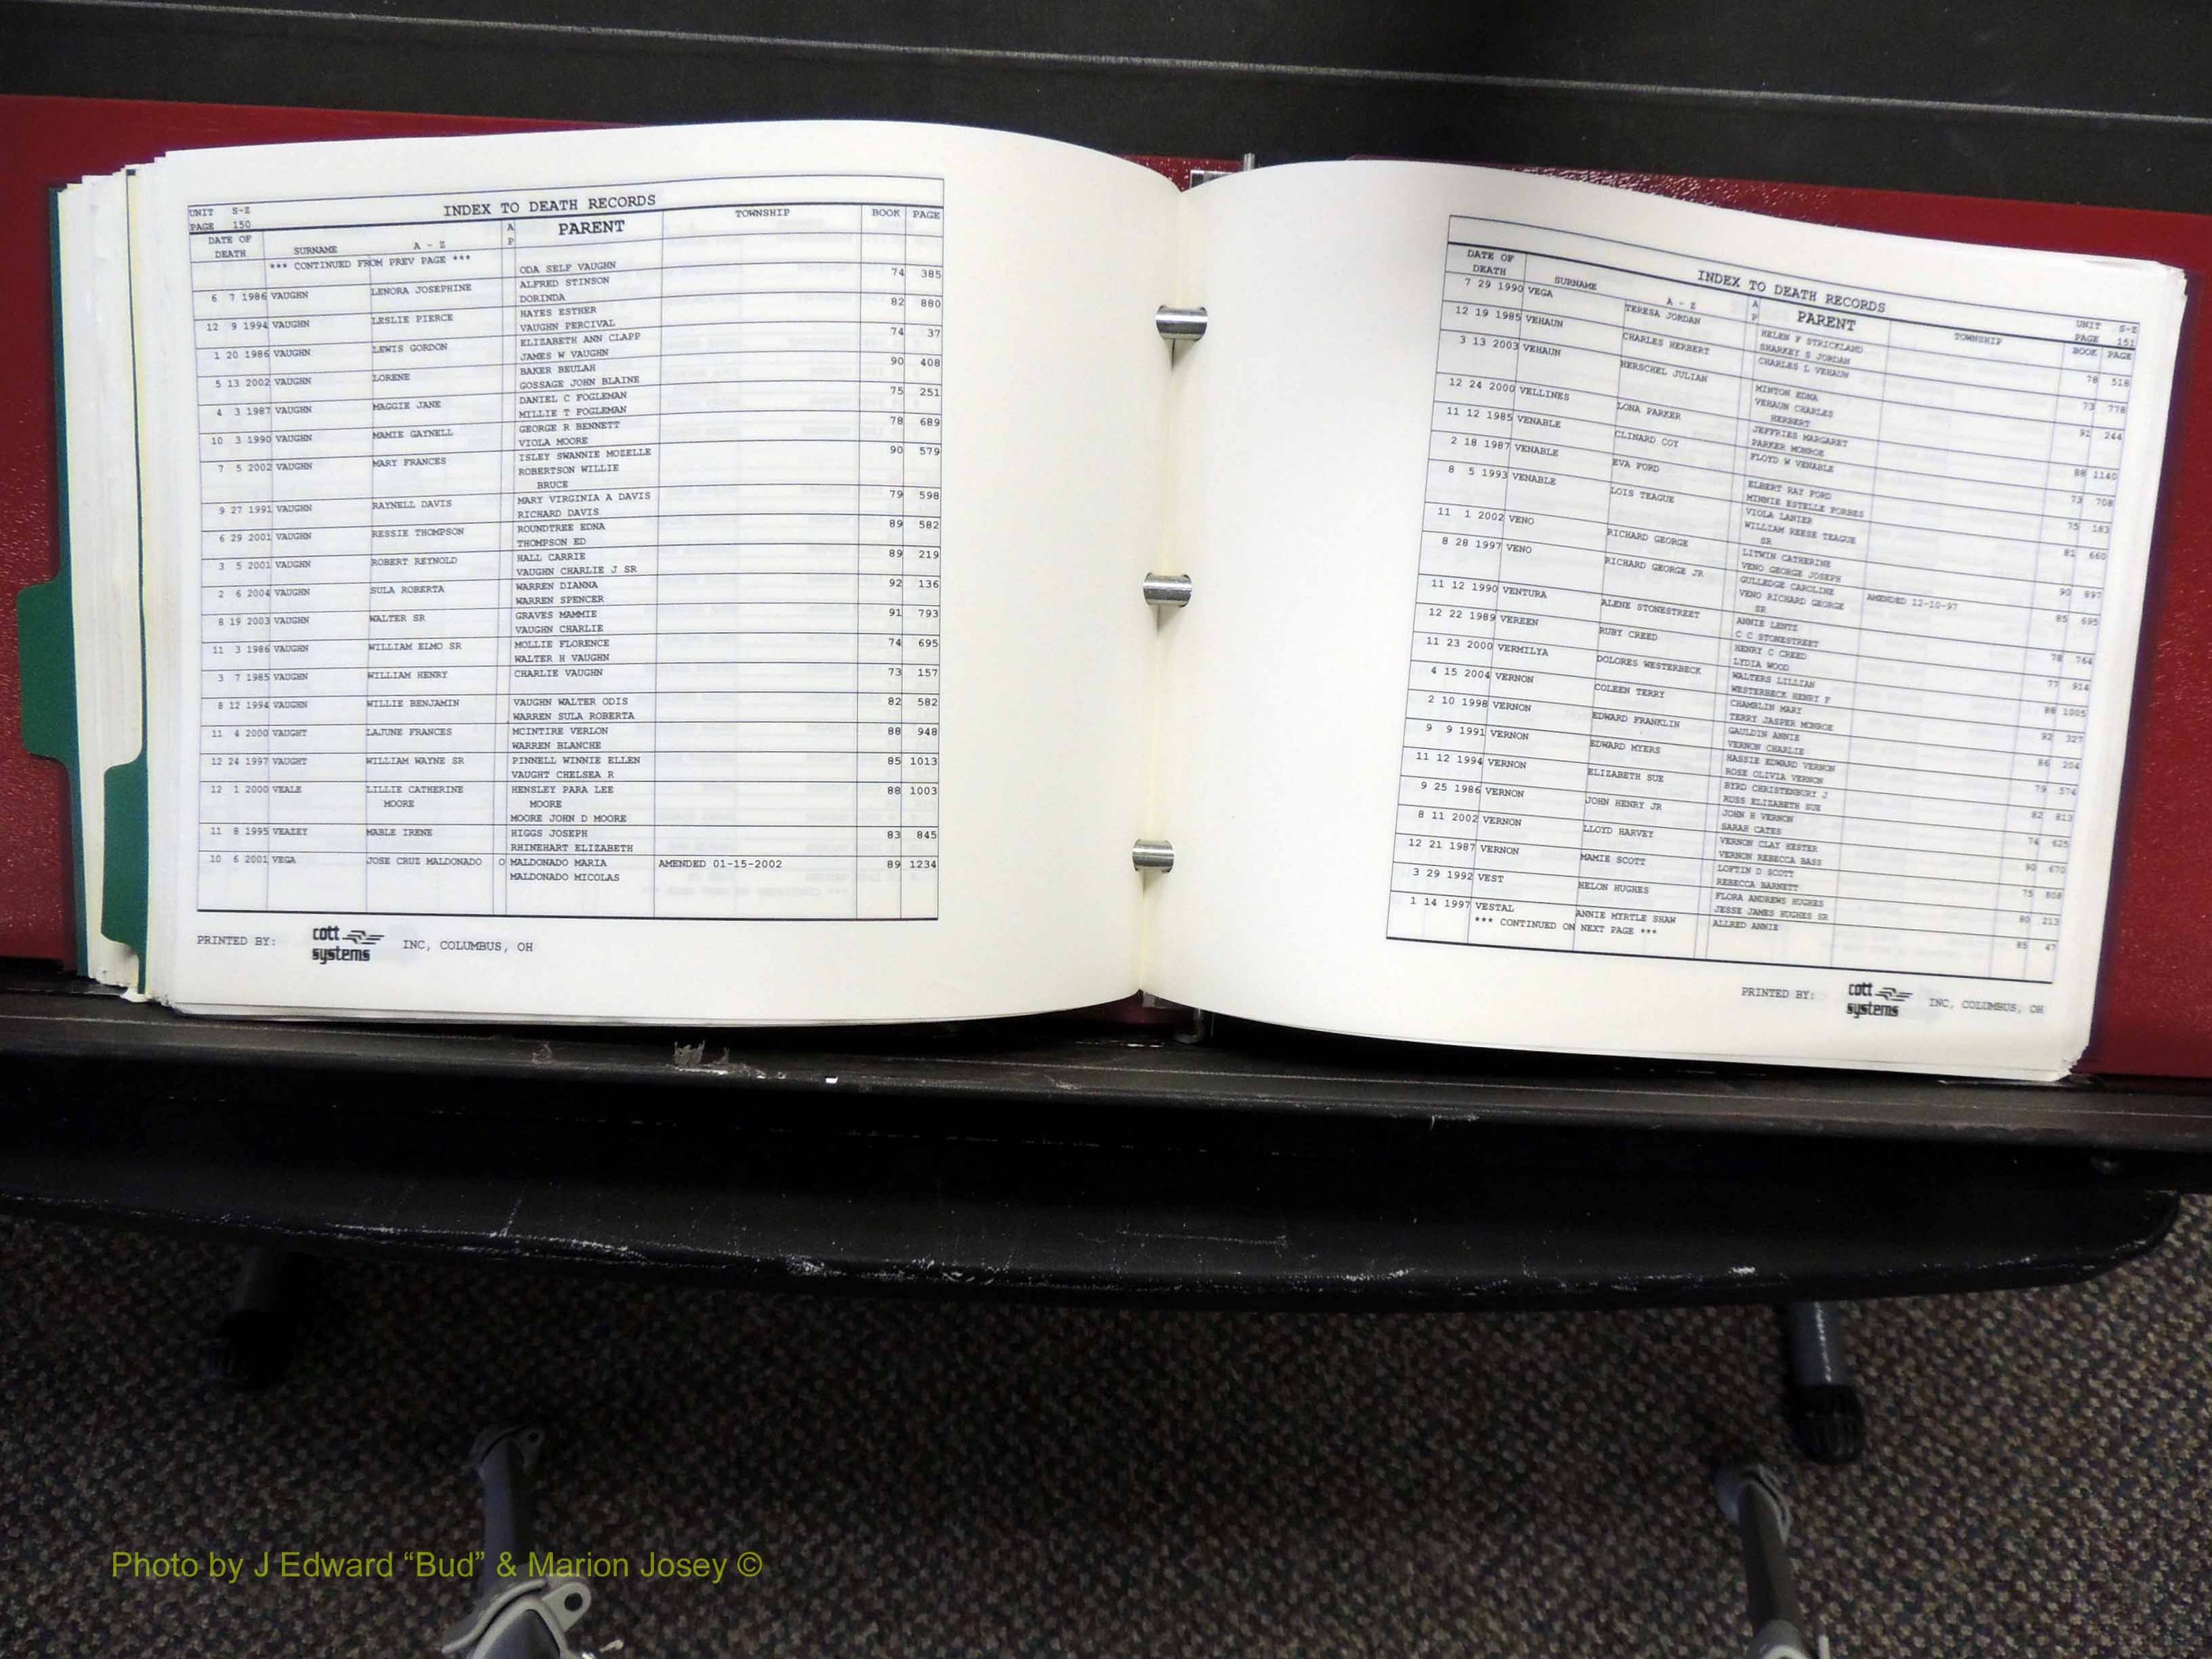 UNIT S-Z
PAGE 150
INDEX TO DEATH RECORDS
DATE OF DEATH SURNAME A - Z A P PARENT TOWNSHIP BOOK PAGE
*** CONTINUED FROM PREV PAGE ***
ODA SELF VAUGHN
6 7 1986 VAUGHN LENORA JOSEPHINE ALFRED STINSON 74 385
DORINDA
12 9 1994 VAUGHN LESLIE PIERCE HAYES ESTHER 82 880
VAUGHN PERCIVAL
1 20 1986 VAUGHN LEWIS GORDON ELIZABETH ANN CLAPP 74 37
JAMES W VAUGHN
5 13 2002 VAUGHN LORENE BAKER BEULAH 90 408
GOSSAGE JOHN BLAINE
4 3 1987 VAUGHN MAGGIE JANE DANIEL C FOGLEMAN 75 251
MILLIE T FOGLEMAN
10 3 1990 VAUGHN MAMIE GAYNELL GEORGE R BENNETT 78 689
VIOLA MOORE
7 5 2002 VAUGHN MARY FRANCES ISLEY SWANNIE MOZELLE 90 579
ROBERTSON WILLIE
BRUCE
9 27 1991 VAUGHN RAYNELL DAVIS MARY VIRGINIA A DAVIS 79 598
RICHARD DAVIS
6 29 2001 VAUGHN RESSIE THOMPSON ROUNDTREE EDNA 89 582
THOMPSON ED
3 5 2001 VAUGHN ROBERT REYNOLD HALL CARRIE 89 219
VAUGHN CHARLIE J SR
2 6 2004 VAUGHN SULA ROBERTA WARREN DIANNA 92 136
WARREN SPENCER
8 19 2003 VAUGHN WALTER SR GRAVES MAMMIE 91 793
VAUGHN CHARLIE
11 3 1986 VAUGHN WILLIAM ELMO SR MOLLIE FLORENCE 74 695
WALTER H VAUGHN
3 7 1985 VAUGHN WILLIAM HENRY CHARLIE VAUGHN 73 157
8 12 1994 VAUGHN WILLIE BENJAMIN VAUGHN WALTER ODIS 82 582
WARREN SULA ROBERTA
11 4 2000 VAUGHT LAJUNE FRANCES MCINTIRE VERLON 88 948
WARREN BLANCHE
12 24 1997 VAUGHT WILLIAM WAYNE SR PINNELL WINNIE ELLEN 85 1013
VAUGHT CHELSEA R
12 1 2000 VEALE LILLIE CATHERINE HENSLEY PARA LEE 88 1003
MOORE MOORE
MOORE JOHN D MOORE
11 8 1995 VEAZEY MABLE IRENE HIGGS JOSEPH 83 845
RHINEHART ELIZABETH
10 6 2001 VEGA JOSE CRUZ MALDONADO O MALDONADO MARIA AMENDED 01-15-2002 89 1234
MALDONADO MICOLAS
PRINTED BY: cott systems INC, COLUMBUS, OH
INDEX TO DEATH RECORDS
UNIT S-Z
PAGE 151
DATE OF DEATH SURNAME A - Z A P PARENT TOWNSHIP BOOK PAGE
7 29 1990 VEGA TERESA JORDAN HELEN F STRICKLAND 78 518
SHARKEY S JORDAN
12 19 1985 VEHAUN CHARLES HERBERT CHARLES L VEHAUN 73 778
3 13 2003 VEHAUN HERSCHEL JULIAN MINTON EDNA 91 244
VEHAUN CHARLES
HERBERT
12 24 2000 VELLINES LONA PARKER JEFFRIES MARGARET 88 1140
PARKER MONROE
11 12 1985 VENABLE CLINARD COY FLOYD W VENABLE 73 708
2 18 1987 VENABLE EVA FORD ELBERT RAY FORD 75 183
MINNIE ESTELLE FORBES
8 5 1993 VENABLE LOIS TEAGUE VIOLA LANIER 81 660
WILLIAM REESE TEAGUE
SR
11 1 2002 VENO RICHARD GEORGE LITWIN CATHERINE 90 897
VENO GEORGE JOSEPH
8 28 1997 VENO RICHARD GEORGE JR GULLEDGE CAROLINE AMENDED 12-10-97 85 695
VENO RICHARD GEORGE
SR
11 12 1990 VENTURA ALENE STONESTREET ANNIE LENTZ 78 764
C C STONESTREET
12 22 1989 VEREEN RUBY CREED HENRY C CREED 77 914
LYDIA WOOD
11 23 2000 VERMILYA DOLORES WESTERBECK WALTERS LILLIAN 88 1005
WESTERBECK HENRY F
4 15 2004 VERNON COLEEN TERRY CHAMBLIN MARY 92 327
TERRY JASPER MONROE
2 10 1998 VERNON EDWARD FRANKLIN GAULDIN ANNIE 86 204
VERNON CHARLIE
9 9 1991 VERNON EDWARD MYERS HASSIE EDWARD VERNON 79 574
ROSE OLIVIA VERNON
11 12 1994 VERNON ELIZABETH SUE BYRD CHRISTENBURY J 82 813
RUSS ELIZABETH SUE
9 25 1986 VERNON JOHN HENRY JR JOHN H VERNON 74 625
SARAH CATES
8 11 2002 VERNON LLOYD HARVEY VERNON CLAY HESTER 90 670
VERNON REBECCA BASS
12 21 1987 VERNON MAMIE SCOTT LOFTIN D SCOTT 75 808
REBECCA BARNETT
3 29 1992 VEST HELON HUGHES FLORA ANDREWS HUGHES 80 213
JESSE JAMES HUGHES SR
1 14 1997 VESTAL ANNIE MYRTLE SHAW ALLRED ANNIE 85 47
*** CONTINUED ON NEXT PAGE ***
PRINTED BY: cott systems INC, COLUMBUS, OH
Photo by J Edward “Bud” & Marion Josey ©